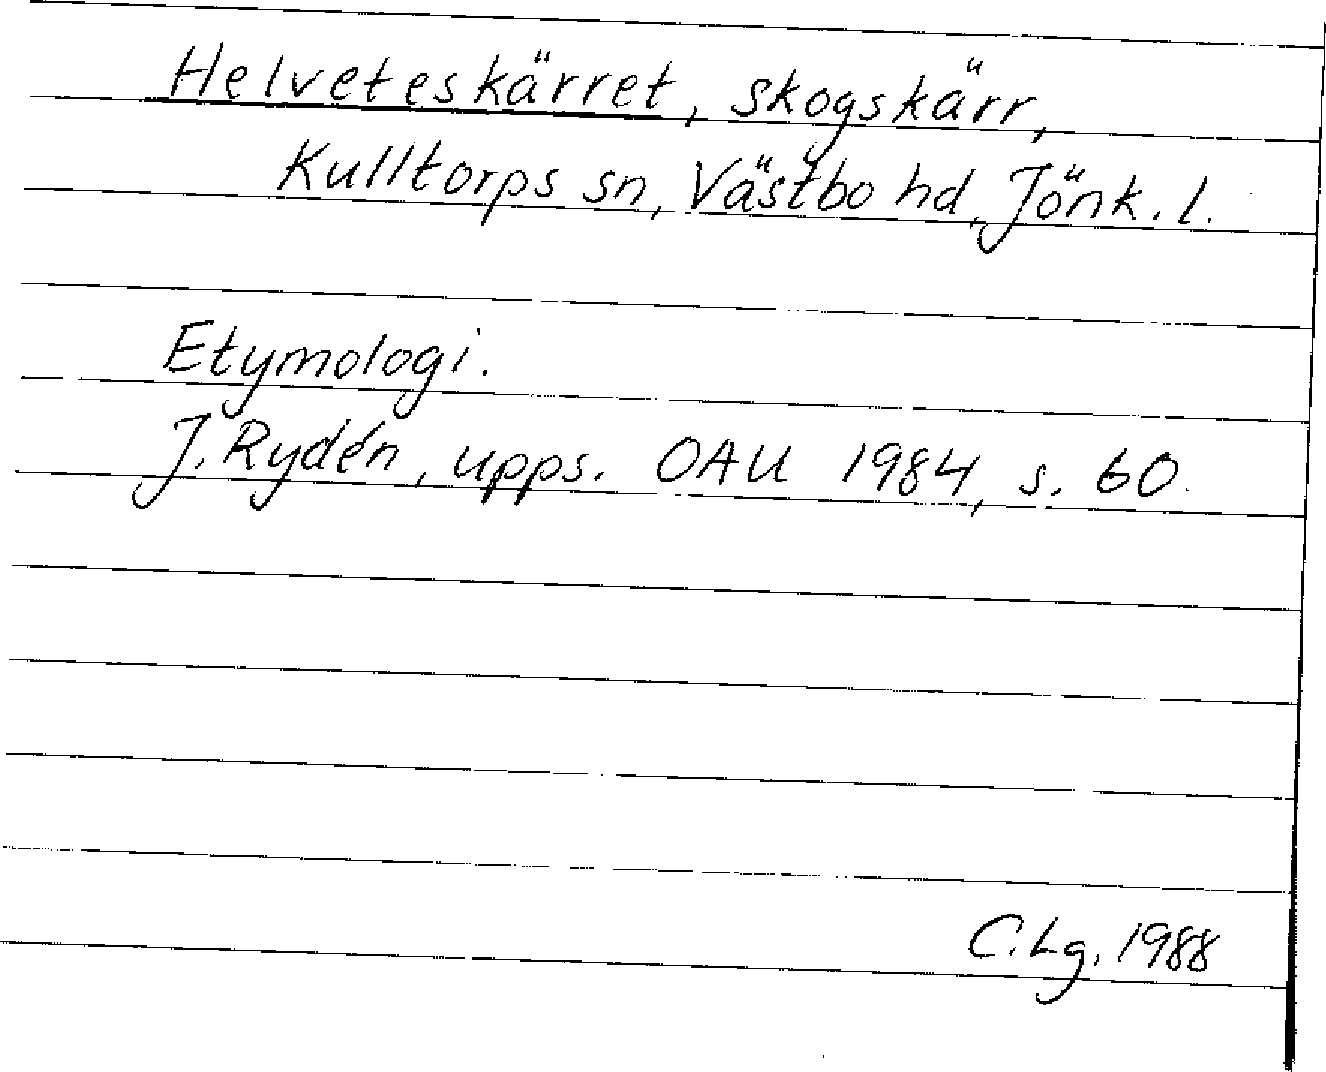 Helveteskärret, skogskärr,
Kulltorps sn, Västbo hd, Jönk. l.
Etymologi.
J. Rydén, upps. OAU 1984, s. 60.
C. Lg. 1988